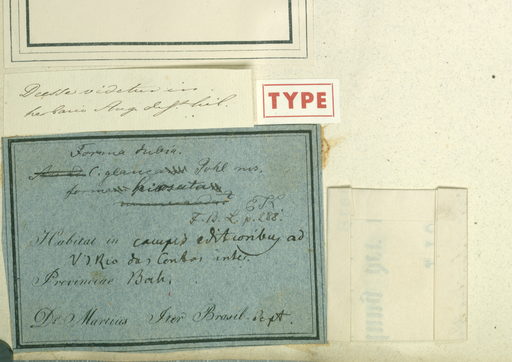 Deesse videtur in
herbario Aug. de St. Hil.
TYPE
Forma dubia.
C. glauca Pohl ms.
forma hirsuta
F. B. L. p. 288.
Habitat in campis editioribus ad
V. Rio das Contas inter.
Provinciae Bah.
De Martius Iter Brasil. Sept.